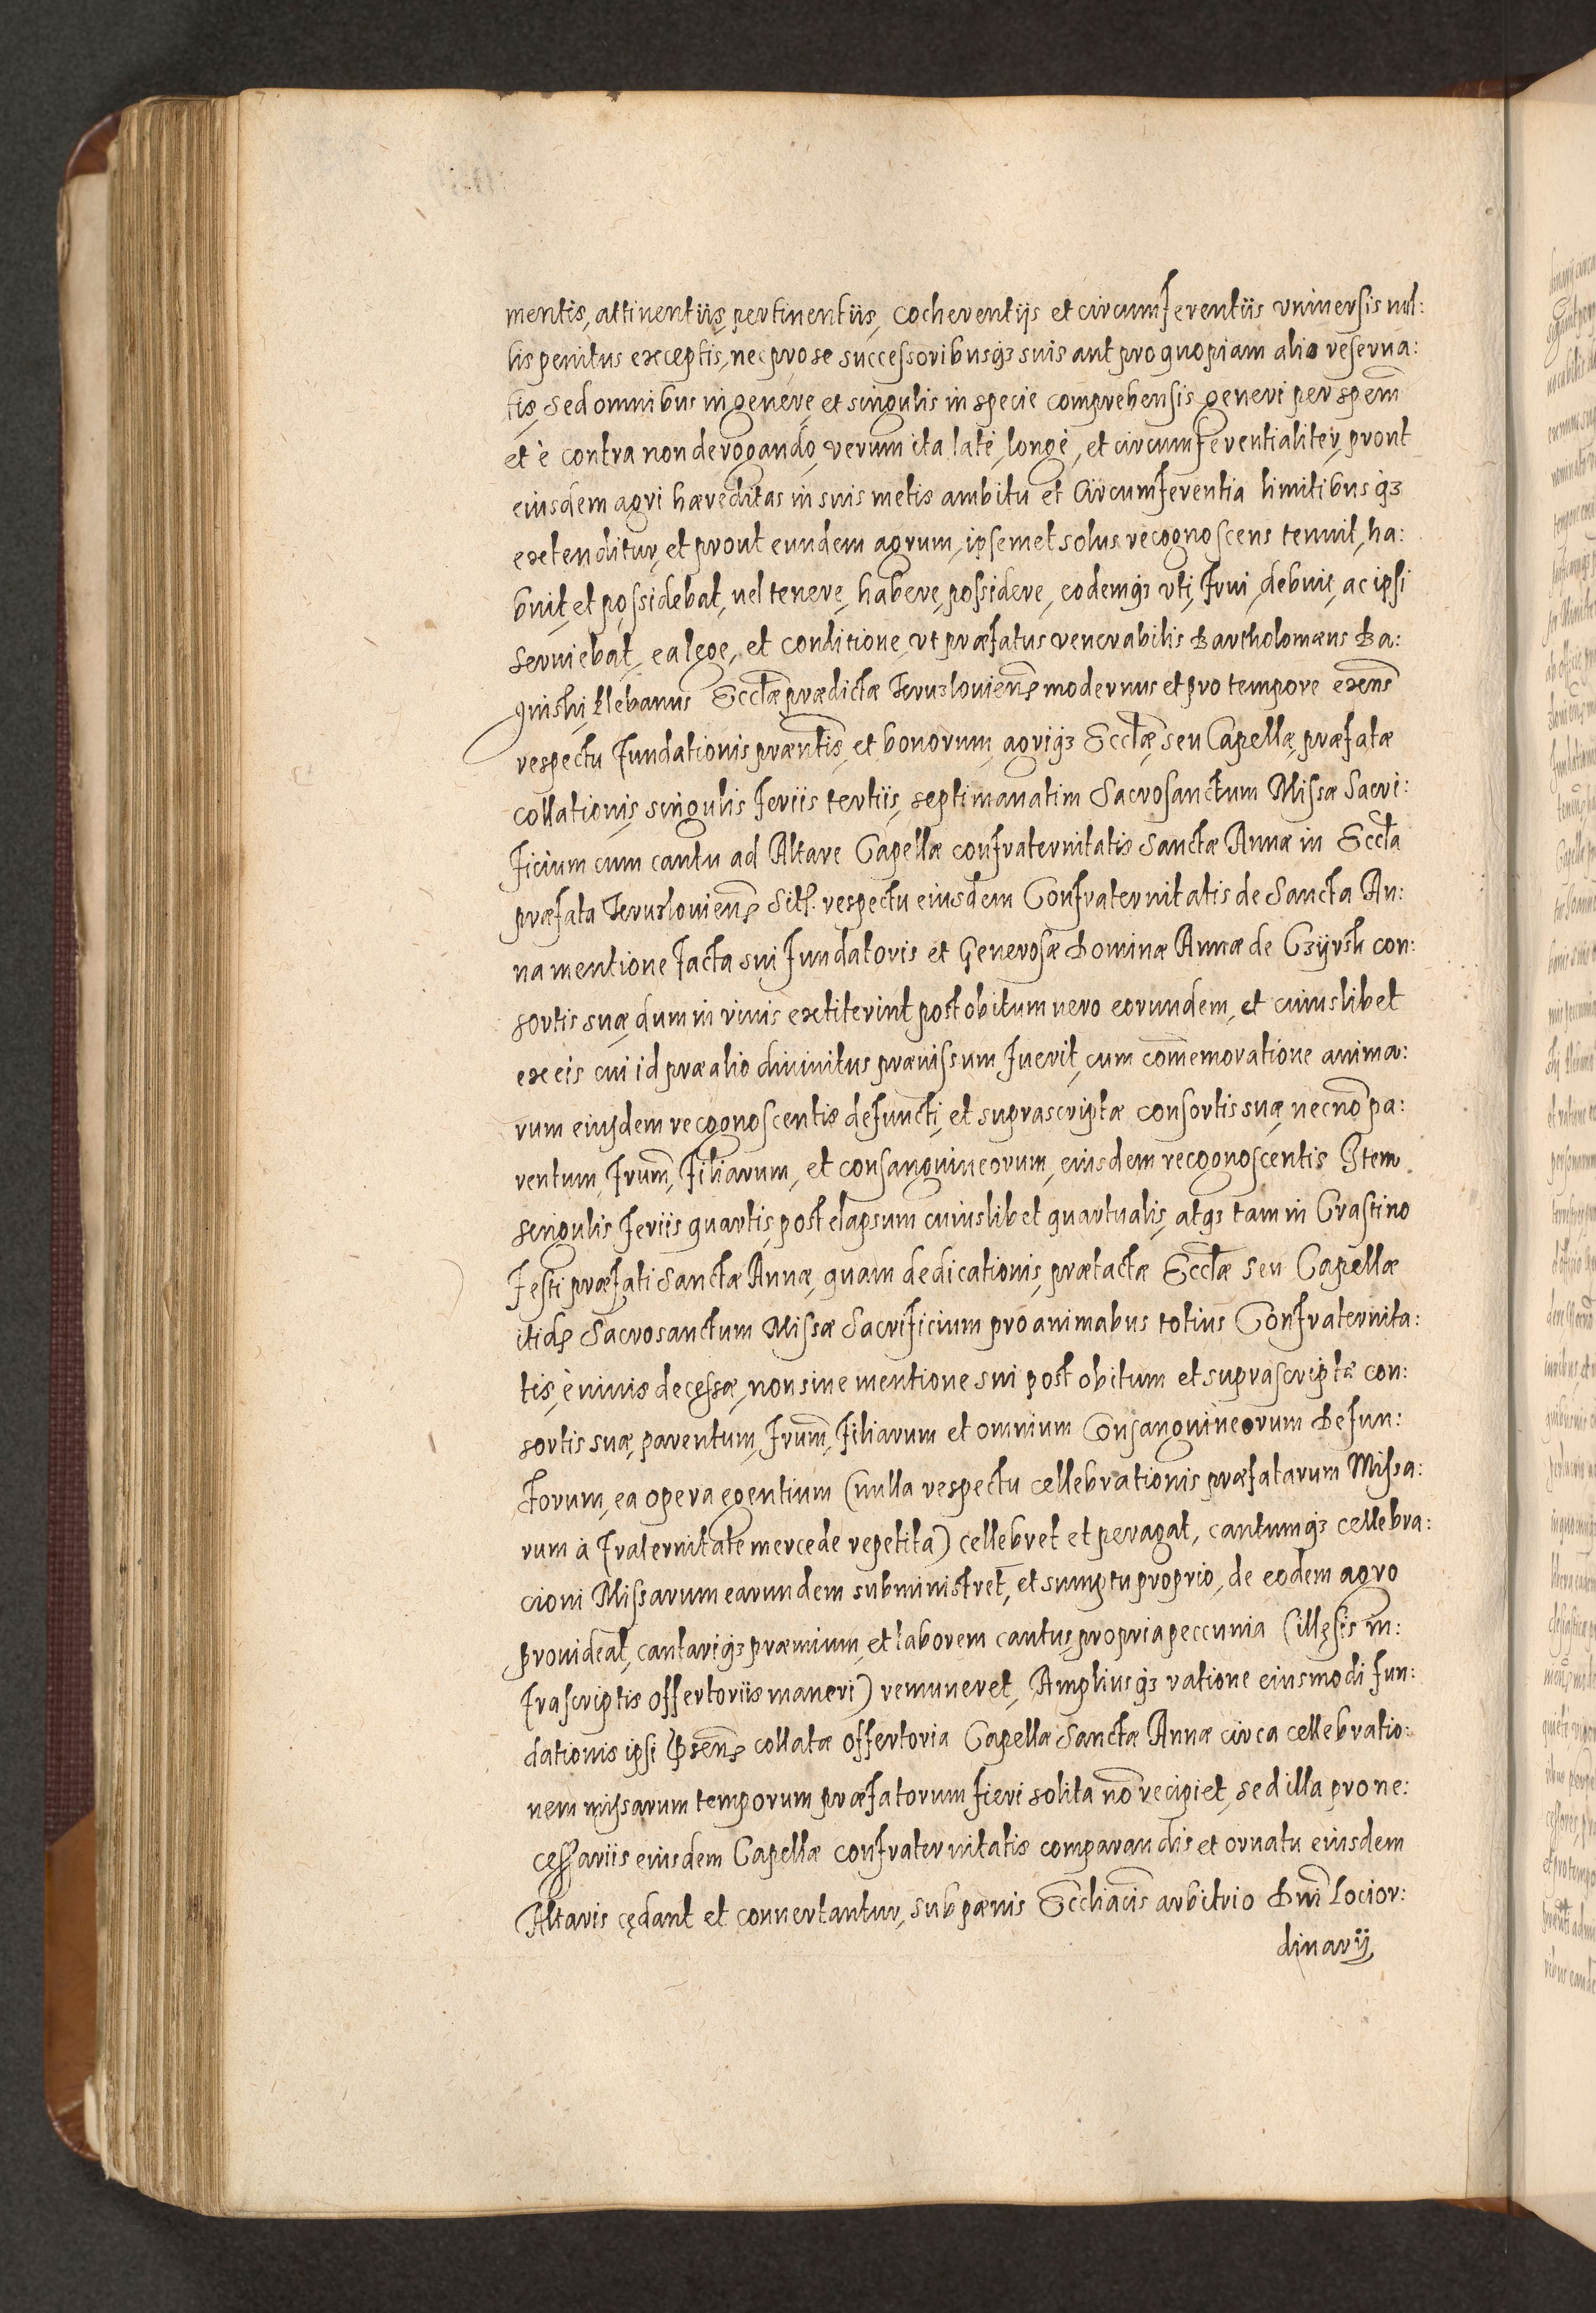 mentis, attinentiis, pertinentiis, cocherentijs et circumferentiis vniuersis nul:
lis penitus exceptis, nec pro se successoribusq3 suis aut pro quopiam alio reserua:
tis, sed omnibus in genere, et singulis in specie comprehensis generi per spem̃
et è contra non derogando, verum ita late, longè, et circumferentialiter, prout
eiusdem agri hæreditas in suis metis ambitu et Circumferentia limitibus q3
extenditur, et prout eundem agrum, ipsemet solus recognoscens tenuit, ha:
buit, et possidebat, uel tenere, habere, possidere, eodemq3 vti, frui, debuit, ac ipsi
seruiebat, ea lege, et conditione, vt præfatus venerabilis Bartholomæus Ba:
Plebanus Ecclæ̃ prædictæ modernus et pro tempore exẽns
respectu fundationis præntis̃, et bonorum, agriq3 Ecclæ̃ seu Capellæ, præfatæ
collationis, singulis feriis tertiis, septimanatim Sacrosanctum Missæ Sacri:
ficium cum cantu ad Altare Capellæ confraternitatis Sanctæ Annæ in Eccla̅
præfata respectu eiusdem Confraternitatis de Sancta An:
na mentione facta sui fundatoris et Generosæ Dominæ Annæ de con:
sortis suæ, dum in viuis extiterint post obitum uero eorundem, et cuiuslibet
ex eis cui id præ alio diuinitus præuissum fuerit, cum com̃emoratione anima:
rum eiusdem recognoscentis defuncti, et suprascriptæ consortis suæ, necnõ pa:
rentum, frum̃, filiarum, et consanguineorum, eiusdem recognoscentis Item
singulis feriis quartis, post elapsum cuiuslibet quartualis, atq3 tam in Crastino
festi præfati Sanctæ Annæ, quam dedicationis, prætactæ Ecclæ̃ seu Capellæ
itidẽ Sacrosanctum Missæ Sacrificium pro animabus totius Confraternita:
tis, è uiuis decessæ, non sine mentione sui post obitum et suprascriptæ con:
sortis suæ, parentum, frum̃, filiarum et omnium Consanguineorum Defun:
ctorum, ea opera egentium (nulla respectu cellebrationis præfatarum Missa:
rum à fraternitate mercede repetita) cellebret et peragat, cantumq3 cellebra:
cioni Missarum earundem subministret, et sumptu proprio, de eodem agro
prouideat, cantariq3 præmium, et laborem cantus, propria peccunia (illęsis in:
frascriptis offertoriis maneri) remuneret, Ampliusq3 ratione eiusmodi fun:
dationis ipsi collatæ offertoria Capellæ Sanctæ Annæ circa cellebratio:
nem missarum temporum præfatorum fieri solita nõ recipiet, sed illa pro ne:
cessariis eiusdem Capellæ confraternitatis comparandis et ornatu eiusdem
Altaris cędant et conuertantur, sub pænis Ecclia͠cis arbitrio Dn͠i Loci or:
dinarij